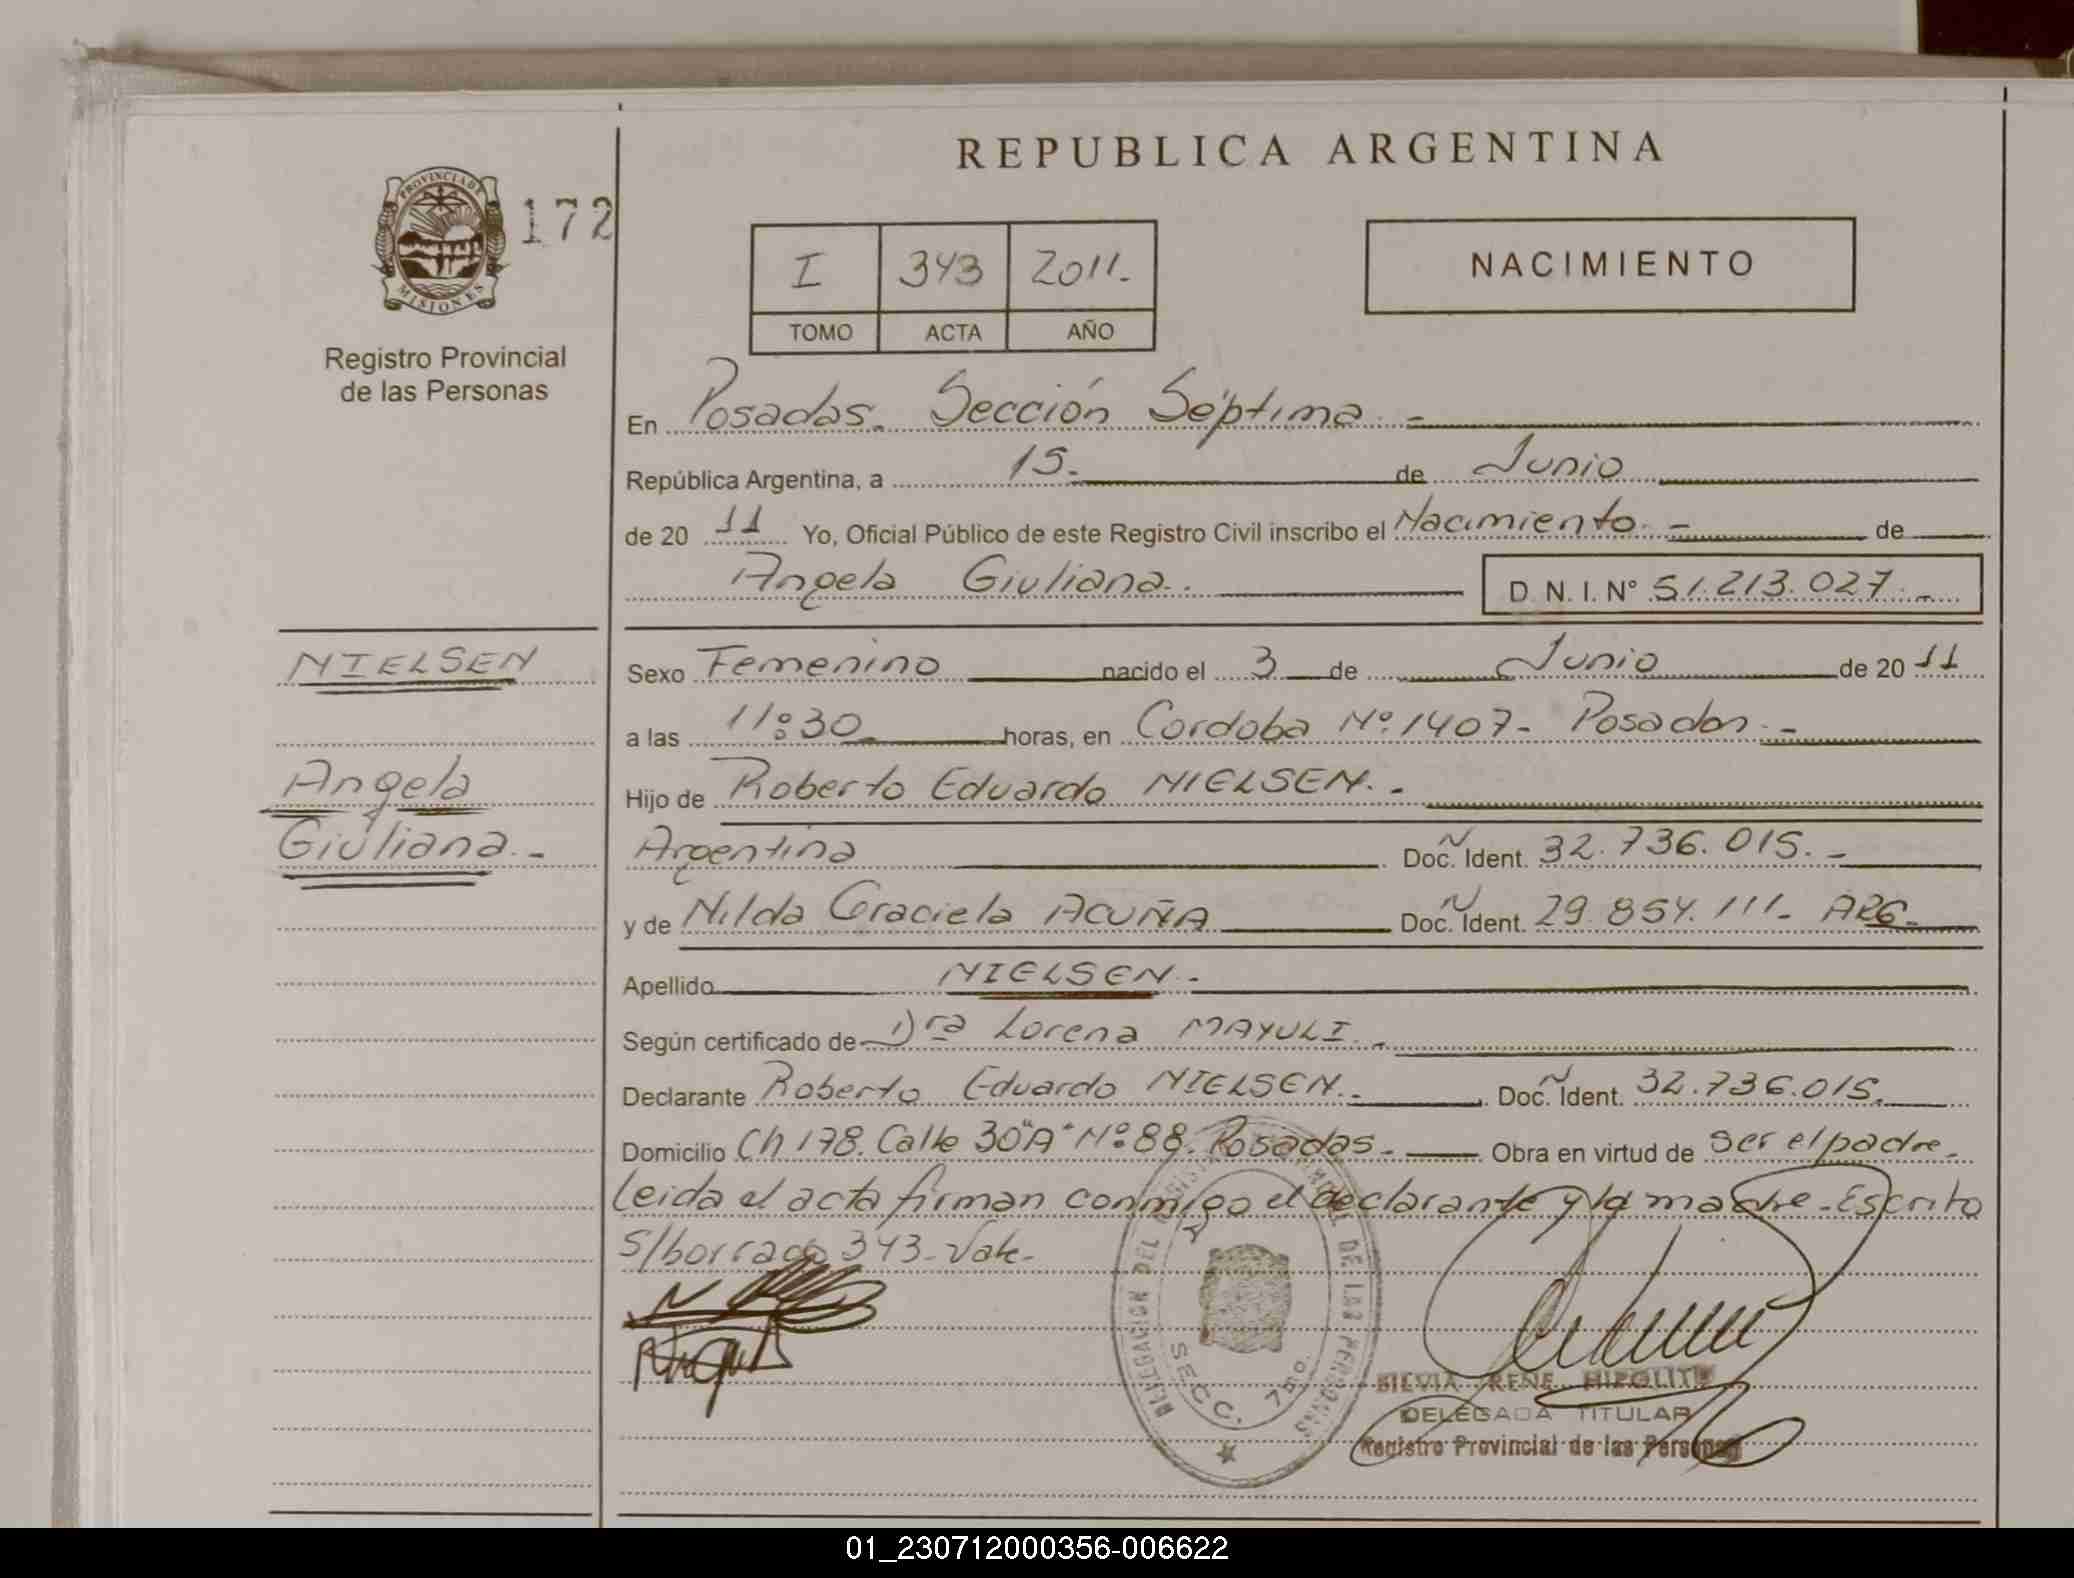 REPUBLICA ARGENTINA
PROVINCIA DE
MISIONES
172
Registro Provincial
de las Personas
I 343 2011.-
TOMO ACTA AÑO
NACIMIENTO
En Posadas. Sección Séptima.-
República Argentina, a 15. de Junio
de 20 11 Yo, Oficial Público de este Registro Civil inscribo el Nacimiento.- de
Angela Giuliana. D. N. I. N° 51.213.027.-
NIELSEN
Angela
Giuliana.-
Sexo Femenino nacido el 3 de Junio de 20 11
a las 11:30 horas, en Cordoba Nº.1407- Posadas.-
Hijo de Roberto Eduardo NIELSEN.-
Argentina Doc. Ident. 32.736.015.-
y de Nilda Graciela ACUÑA Doc. Ident. 29.854.111- ARG-
Apellido NIELSEN.-
Según certificado de Dra Lorena MAYULI.-
Declarante Roberto Eduardo NIELSEN.- Doc. Ident. 32.736.015.
Domicilio Ch 178. Calle 30"A" Nº 88. Posadas.- Obra en virtud de ser el padre.-
Leida el acta firman conmigo el declarante y la madre.-Escrito
S/borrado 343-Vale-
DELEGACION DEL REGISTRO PROVINCIAL DE LAS PERSONAS
SECC. 7ma.
SILVIA IRENE HIPOLITO
DELEGADA TITULAR
Registro Provincial de las Personas
01_230712000356-006622